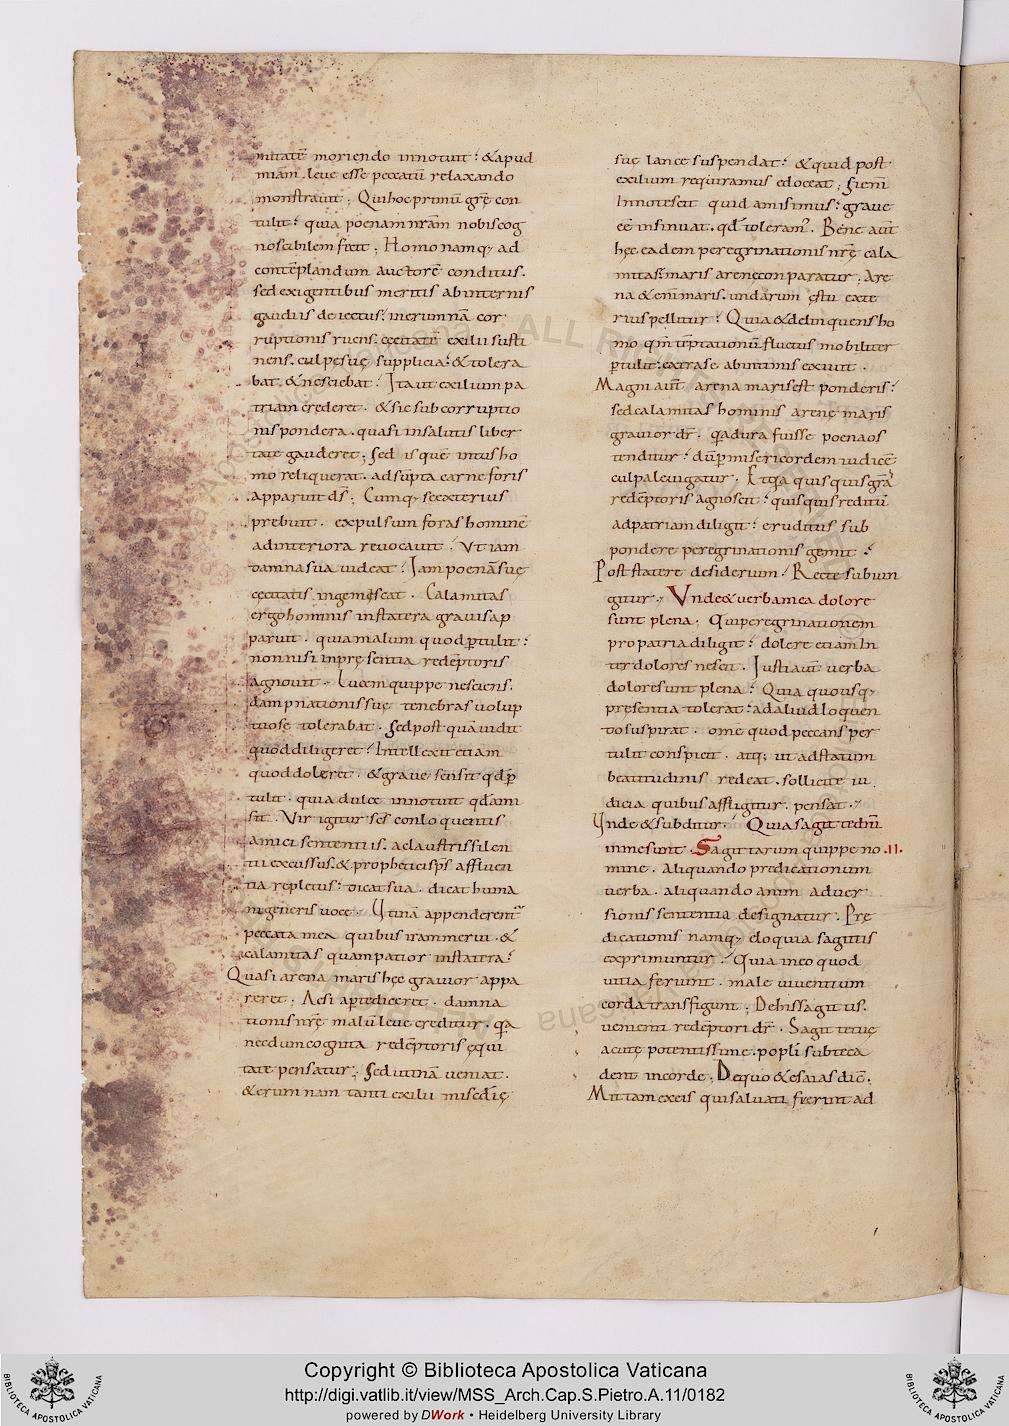 mitatē moriendo innotuit: & apud
miam. leue esse peccatū relaxando
monstrauit; Qui hoc primū grę con
tulit: quia poenam nr̄am nobis cog
noscibilem fecit; Homo namq; ad
contēplandum auctorē conditus.
sed exigentibus meritis ab internis
gaudiis deiectus: in erumnā cor
ruptionis ruens. cecitatē exilii susti
nens. culpę suę supplicia: & tolera
bat, & nesciebat: Ita ut exilium pa
triam crederet. & sic sub corruptio
nis pondera. quasi in salutis liber
tate gauderet; Sed is quē intus ho
mo reliquerat. adsūpta carne foris
apparuit ds̄; Cumq; se exterius
prebuit. expulsum foras hominē
ad interiora reuocauit: Vt iam
damna sua uideat: Iam poenā suę
cecitatis ingemiscat. Calamitas
ergo hominis in statera grauis ap
paruit. quia malum quod ptulit:
non nisi in pręsentia redēptoris
agnouit. Lucem quippe nesciens.
dampnationis suę tenebras uolup
tuose tolerabat. Sed post quā uidit
quod diligeret: Intellexit etiam
quod doleret. & graue sensit qd p
tulit. quia dulce innotuit qd ami
sit. Vir igitur scs̄ conloquentis
amici sententiis. a claustris silen
tii excussus. & prophetici sps̄ affluen
tia repletus: dicat sua. dicat huma
ni generis uoce. Vtinā appenderentr̄
peccata mea quibus iram merui. &
calamitas quam patior in statera:
Quasi arena maris hęc grauior appa
reret; Ac si apte diceret. damna
tionis nr̄ę malū leue creditur. qa
necdum cognita redēptoris ęqui
tate pensatur; Sed utinā ueniat.
& erumnam tanti exilii misędię
suę lance suspendat: & quid post
exilium requiramus edoceat; Si enī
Innotescit quid amisimus: graue
eē insinuat. qd toleram̄. Bene aut̄
hęc eadem peregrinationis nr̄ę cala
mitas: maris arenę conparatur; Are
na & enī maris. undarum ęstu exte
rius pellitur: Quia & delinquens ho
mo qm̄ tēptationū fluctus mobiliter
ptulit: extra se ab intimis exiuit.
Magni aut̄ arena maris est ponderis:
sed calamitas hominis arenę maris
grauior dr̄. qa dura fuisse poena os
tenditur: dū p misericordem iudicē
culpa leuigatur. Et qa quisquis grā
redēptoris agnoscit: quisquis reditū
ad patriam diligit: eruditus sub
pondere peregrinationis gemit:
Post staterę desiderium. Recte subiun
gitur, Vnde & uerba mea dolore
sunt plena. Qui peregrinationem
pro patria diligit: dolere etiam In
ter dolores nescit. Iusti aut̄ uerba
dolore sunt plena: Quia quousq;
presentia tolerat: ad aliud loquen
do suspirat. omē quod peccans per
tulit conspicit. atq; ut ad statum
beatitudinis redeat. sollicite iu
dicia quibus affligitur. pensat.
Vnde & subditur. Quia sagittę dn̄i
in me sunt. Sagittarum quippe no .II.
mine. aliquando predicationum
uerba. aliquando anim aduer
sionis sententia designatur. Prę
dicationis namq; eloquia sagittis
exprimuntur: Quia in eo quod
uitia feriunt. male uiuentium
corda transfigunt; De his sagittis.
uenienti redēptori dr̄. Sagittę tuę
acutę potentissime. popli sub te ca
dent in corde; De quo & esaias dic̄.
Mittam ex eis qui saluati fuerint ad
Copyright © Biblioteca Apostolica Vaticana
http://digi.vatlib.it/view/MSS_Arch.Cap.S.Pietro.A.11/0182
powered by DWork • Heidelberg University Library
BIBLIOTECA APOSTOLICA VATICANA
BIBLIOTECA APOSTOLICA VATICANA